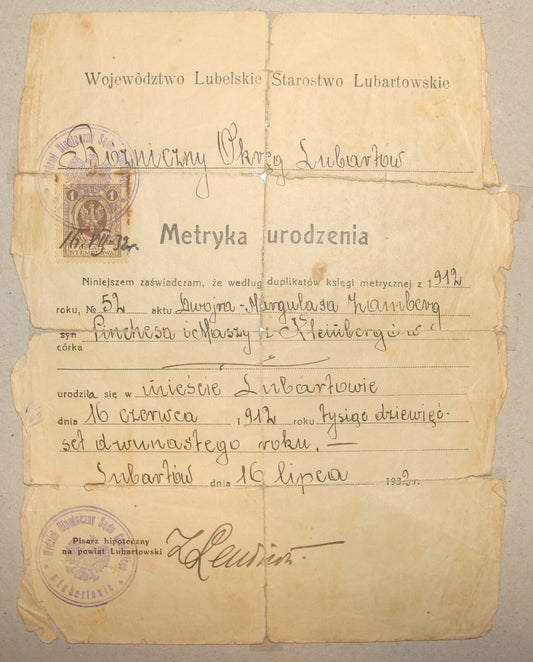 Województwo Lubelskie Starostwo Lubartowskie
Bóżniczny Okręg Lubartów
1 1
16.VII-32r.
Metryka urodzenia
Niniejszem zaświadczam, że według duplikatów księgi metrycznej z 1912
roku, № 52 aktu Dwojra-Margulasa Zamberg
syn Pinchesa i Maszy z Kleinbergów
córka
urodziła się w mieście Lubartowie
dnia 16 czerwca 1912 roku tysiąc dziewięć-
set dwunastego roku. —
Lubartów dnia 16 lipca 1932r.
Pisarz hipoteczny
na powiat Lubartowski
Wydział Hipoteczny Sądu
w Lubartowie